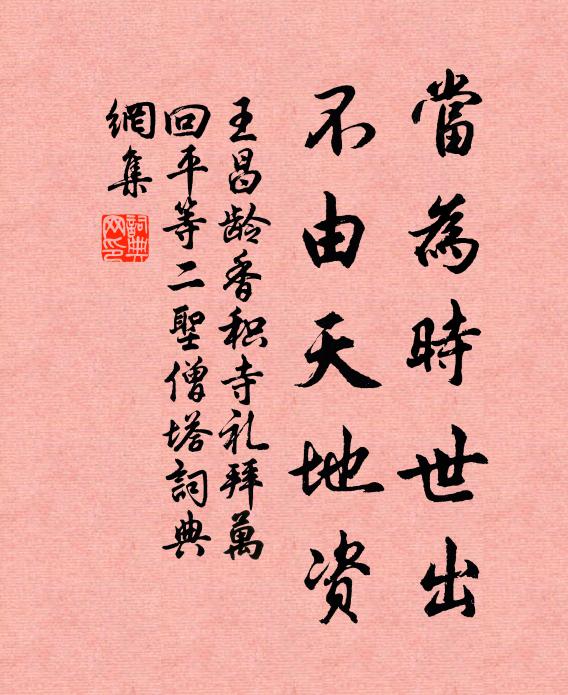 當為時世出
不由天地资
王昌龄香积寺礼拜萬
回平等二聖僧塔詞典
網集
詞典网印